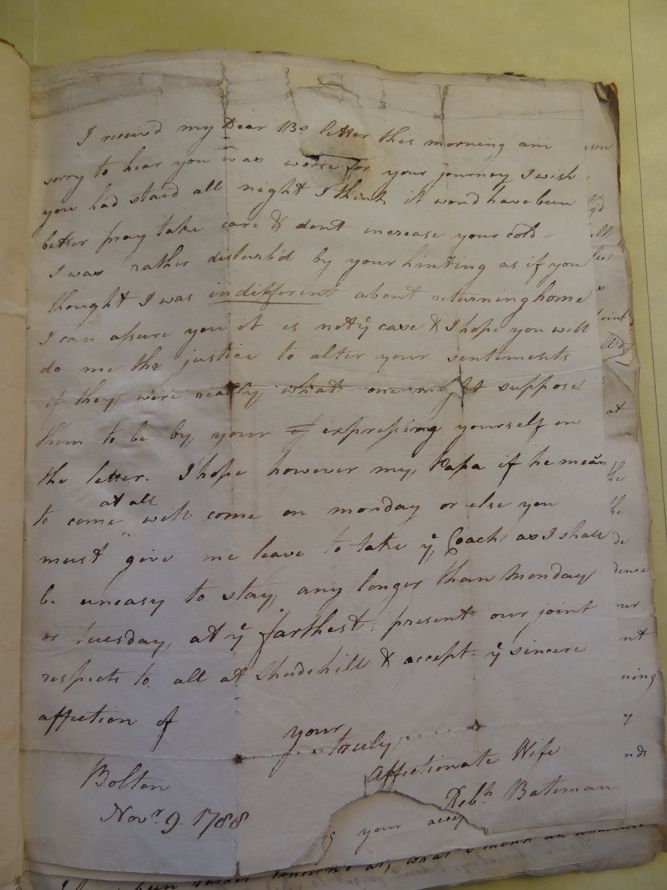 I receiv'd my Dear Bs letter this morning am
sorry to hear you was worse for your journey, I wish
you had staid all night I think it woud have been
better pray take care & dont increase your cold -
I was rather disturb'd by your hinting as if you
thought I was indifferent about returning home
I can assure you it is not ye case & I hope you will
do me the justice to alter your sentements
if they were really what one might suppose
them to be by your expressing yourself in
the letter. I hope however my Papa if he mean
to come at all will come on monday or else you
must give me leave to take ye Coach as I shall
be uneasy to stay any longer than Monday
or Tuesday at ye farthest. present our joint
respects to all at Shudehill & accept ye sincere
affection of your
truly
Affectionate Wife
Rebh Bateman
Bolton
Novr 9 1788
your